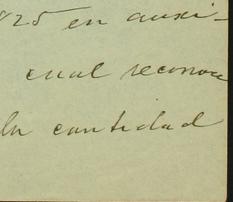 825 en auxi-
cual reconoc
la cantidad